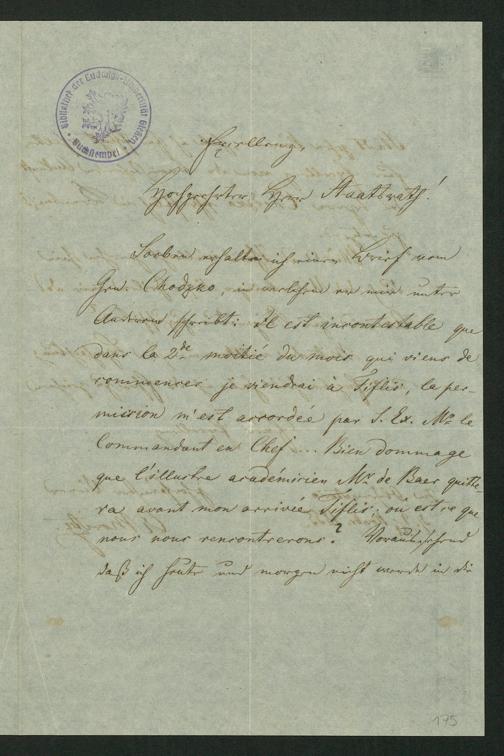 Bibliothek der Ludwigs-Universität Giessen
Buchstempel
Excellenz,
Hochgeehrter Herr Staatsrath!
Soeben erhalte ich einen Brief vom
Gen. Chodzko, in welchem er mir unter
Anderem schreibt: Il est incontestable que
dans la 2de moitié du mois qui viens de
commencer je viendrai à Tiflis, la per-
mission m'est accordée par S. Ex. Mr le
Commandant en Chef... Bien dommage
que l'illustre académicien Mr de Baer quitte-
ra avant mon arrivée Tiflis; ou est ce que
nous nous rencontrerons? Voraussehend
daß ich heute und morgen nicht werde in die
175